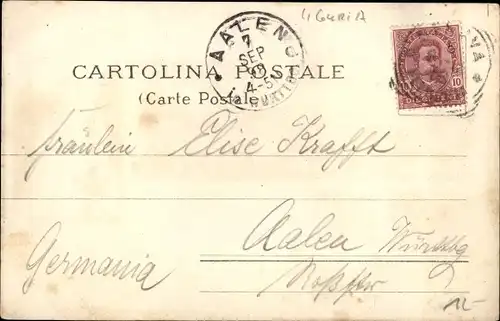 LIGURIA
AALEN
7
SEP
4-5
WÜRTT
VA
10
CARTOLINA POSTALE
(Carte Postale
Fräulein Elise Krafft
Aalen Württbg
Germania
12-